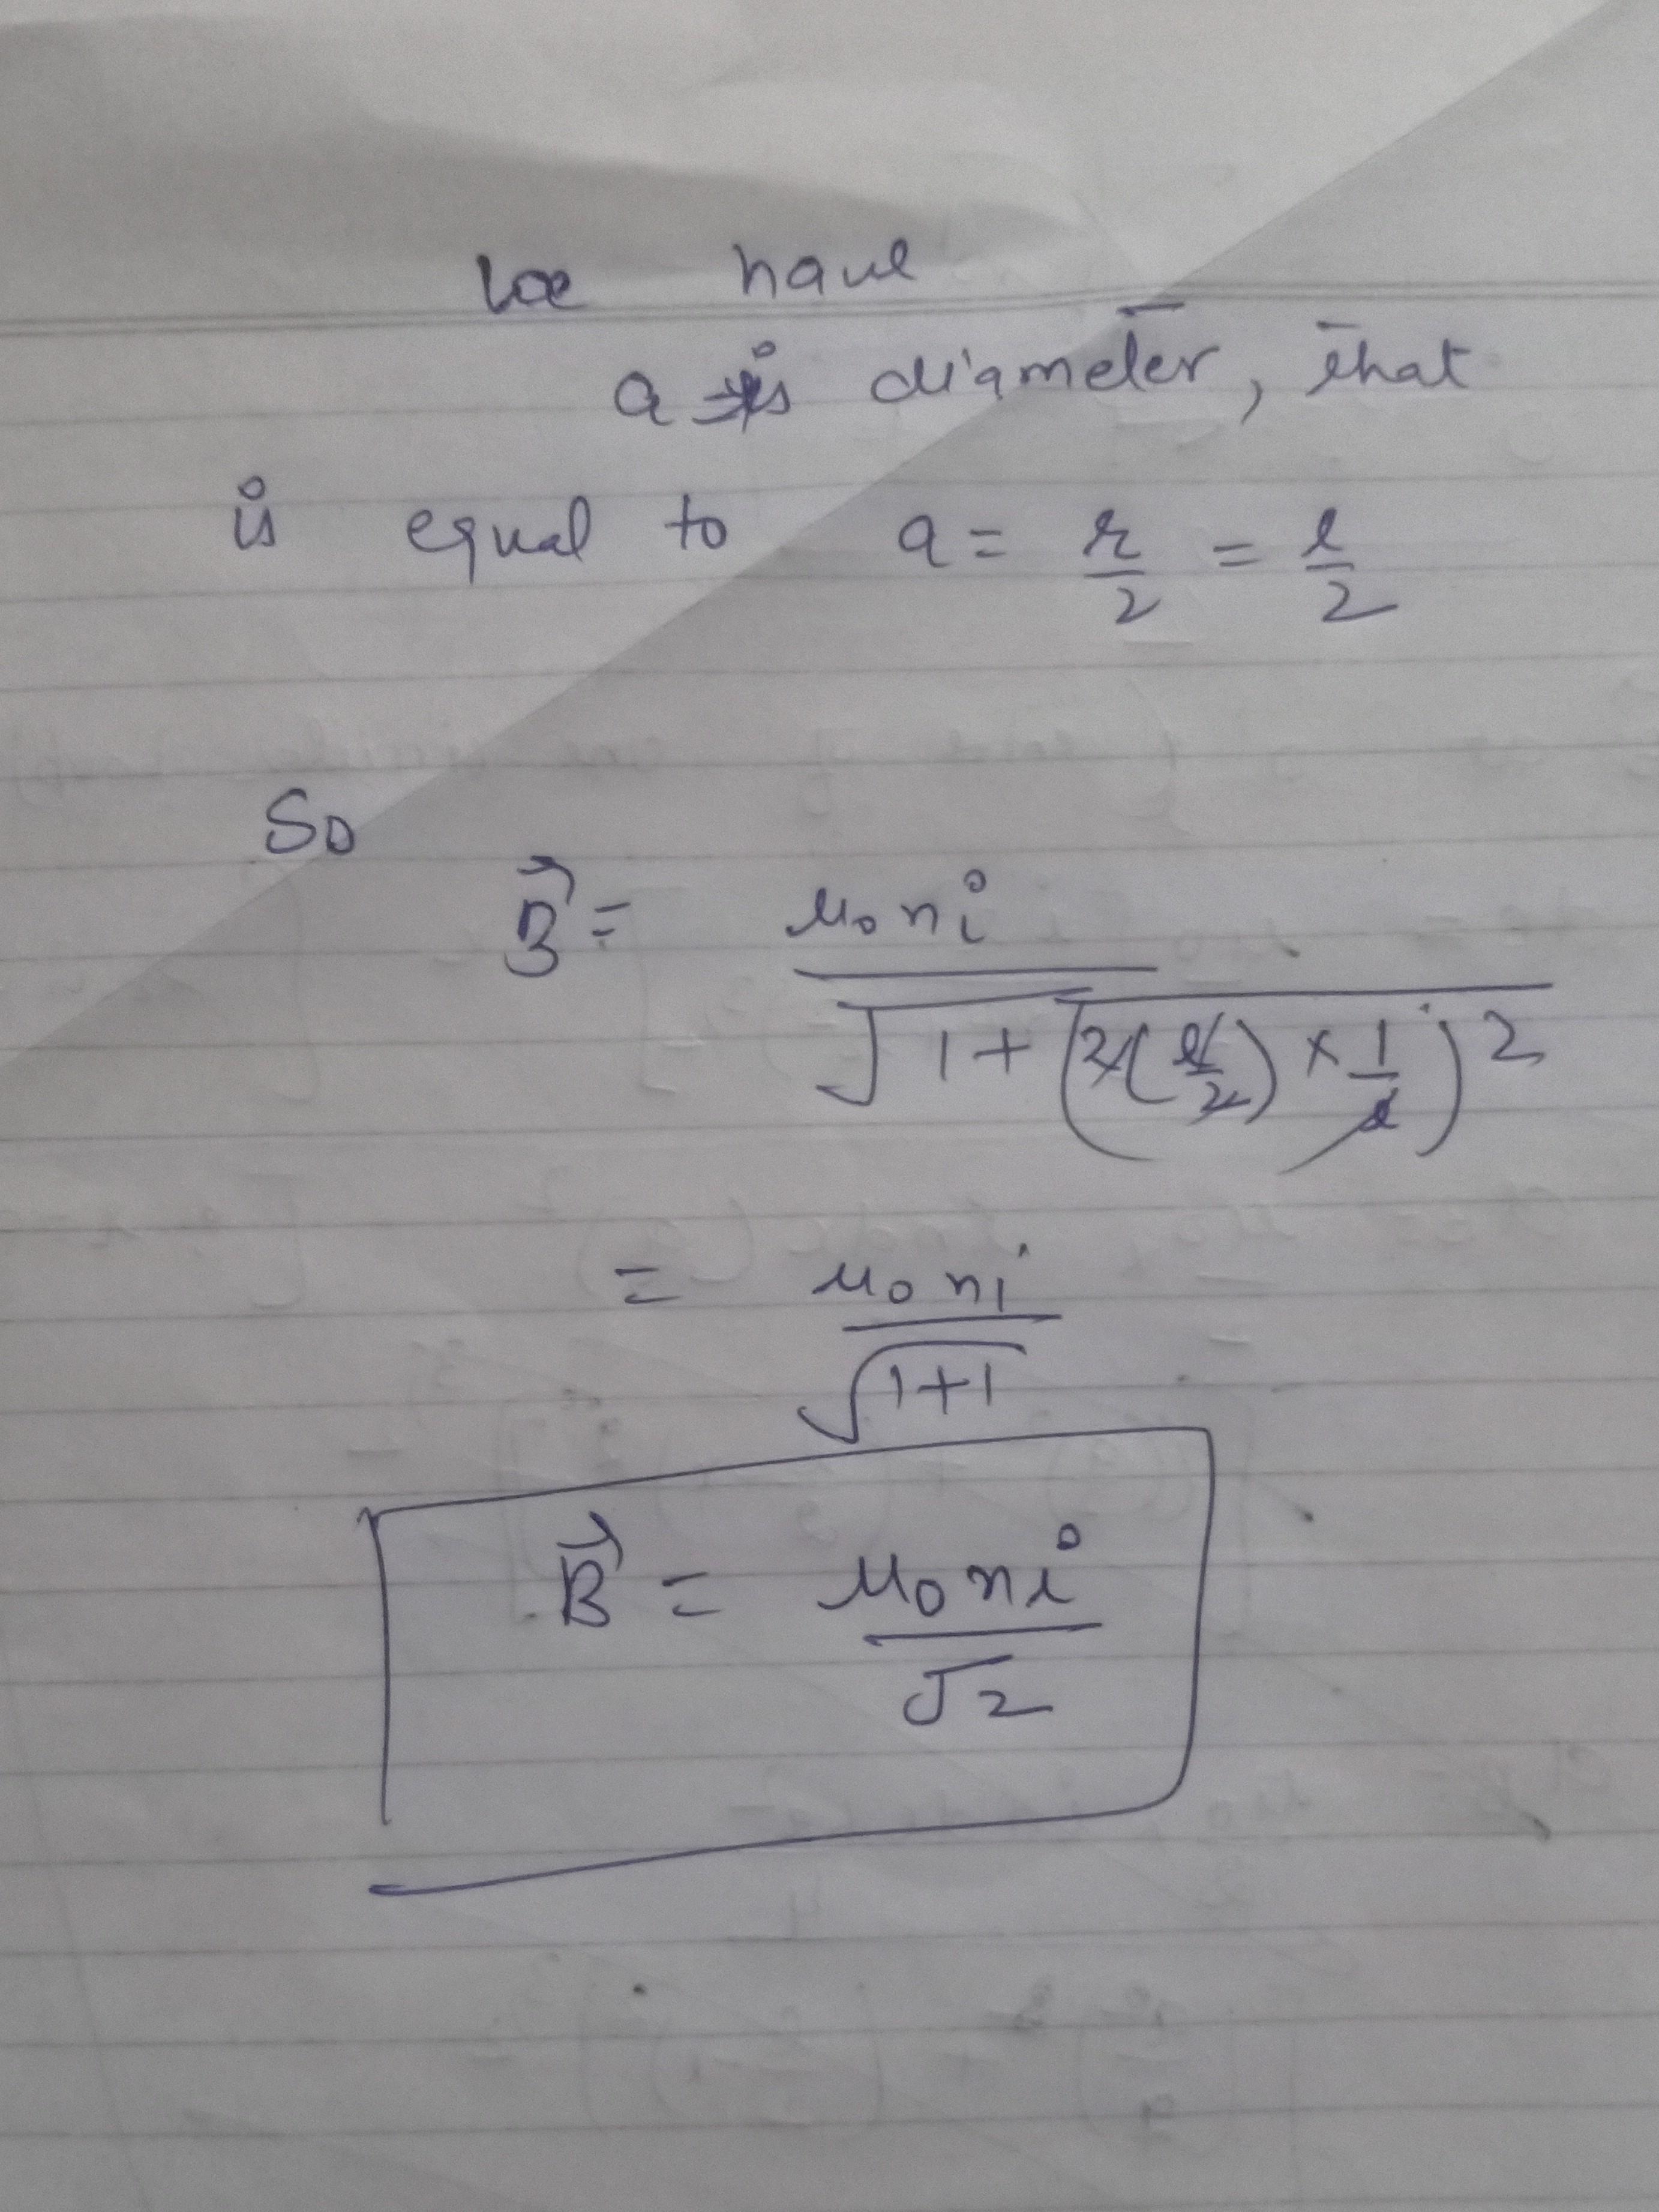 We have
a is diameter, that
is equal to a = r/2 = l/2
So
B⃗ = μ₀ni / √(1 + (2(l/2) × 1/l)²)
= μ₀ni / √(1+1)
B⃗ = μ₀ni / √2